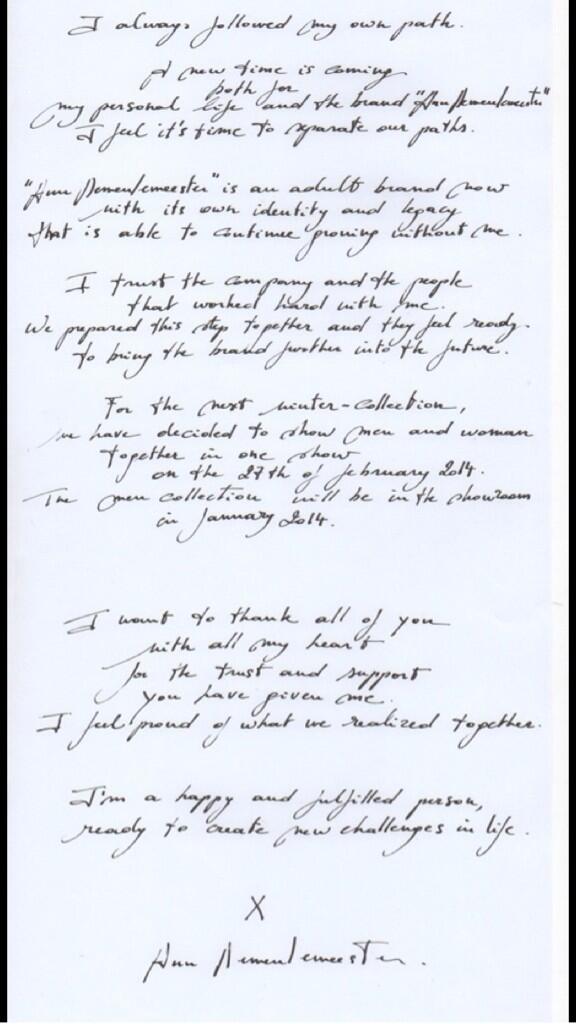 I always followed my own path.
A new time is coming
both for
my personal life and the brand "Ann Demeulemeester"
I feel it's time to separate our paths.
"Ann Demeulemeester" is an adult brand now
with its own identity and legacy
that is able to continue growing without me.
I trust the company and the people
that worked hard with me.
We prepared this step together and they feel ready
to bring the brand further into the future.
For the next winter-collection,
we have decided to show men and woman
together in one show
on the 27th of february 2014.
The men collection will be in the showroom
in January 2014.
I want to thank all of you
with all my heart
for the trust and support
you have given me.
I feel proud of what we realized together.
I'm a happy and fulfilled person,
ready to create new challenges in life.
X
Ann Demeulemeester.